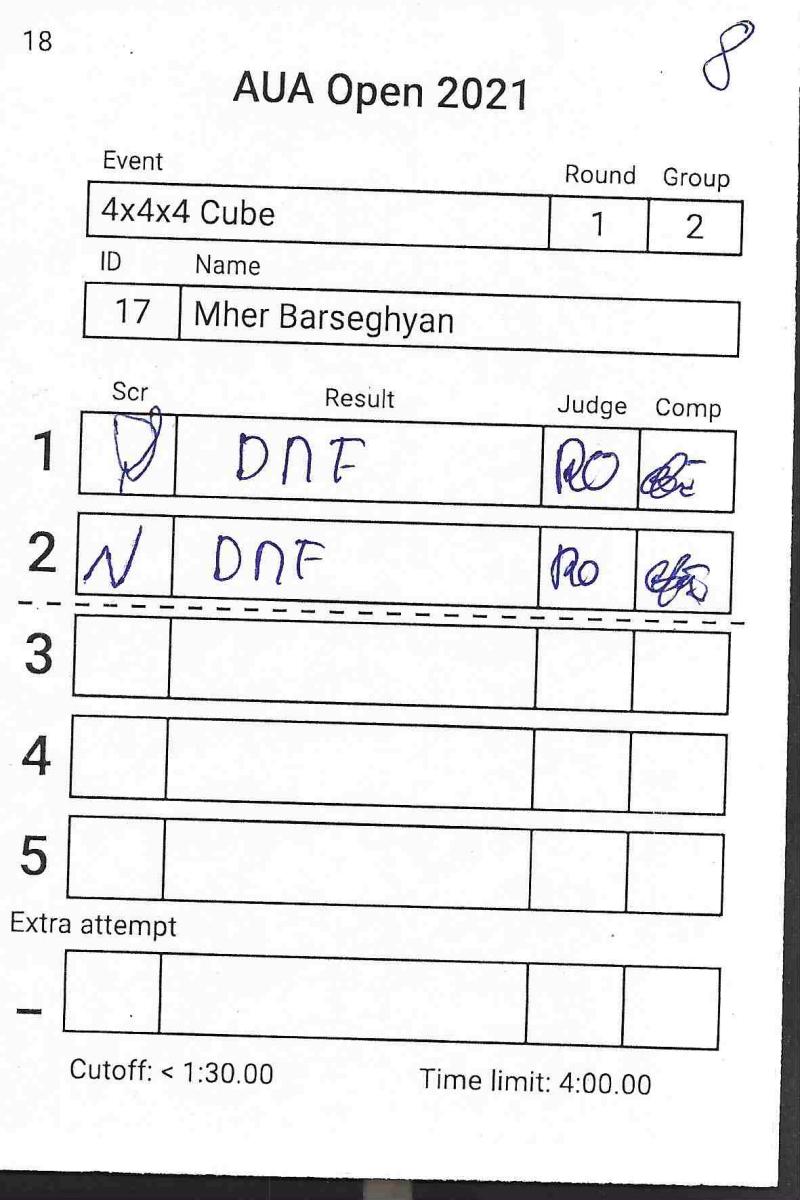 18
8
AUA Open 2021
Event Round Group
4x4x4 Cube 1 2
ID Name
17 Mher Barseghyan
Scr Result Judge Comp
1 DNF RO
2 N DNF RO
3
4
5
Extra attempt
–
Cutoff: < 1:30.00 Time limit: 4:00.00